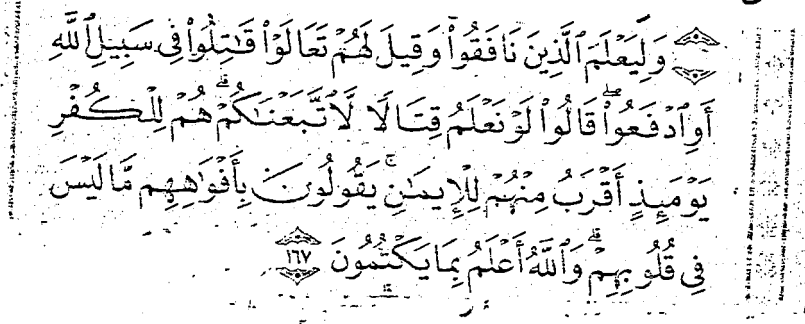 وَلِيَعْلَمَ ٱلَّذِينَ نَافَقُوا۟ ۚ وَقِيلَ لَهُمْ تَعَالَوْا۟ قَٰتِلُوا۟ فِى سَبِيلِ ٱللَّهِ
أَوِ ٱدْفَعُوا۟ ۖ قَالُوا۟ لَوْ نَعْلَمُ قِتَالًا لَّٱتَّبَعْنَٰكُمْ ۗ هُمْ لِلْكُفْرِ
يَوْمَئِذٍ أَقْرَبُ مِنْهُمْ لِلْإِيمَٰنِ ۚ يَقُولُونَ بِأَفْوَٰهِهِم مَّا لَيْسَ
فِى قُلُوبِهِمْ ۗ وَٱللَّهُ أَعْلَمُ بِمَا يَكْتُمُونَ ١٦٧